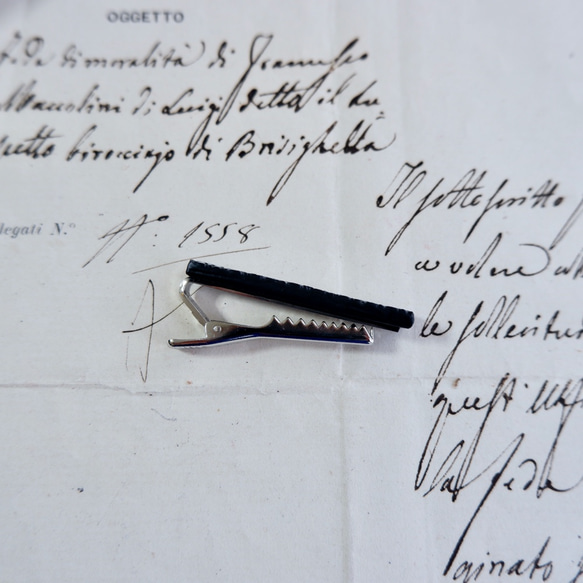 OGGETTO
Fede di moralità di Francesco
Maccolini di Luigi detto il Fu-
ghetto birocciajo di Brisighella
legati N.°
N.° 1558
Il sottoscritto
a volere
le sollecitu
questi
la fede
ginato